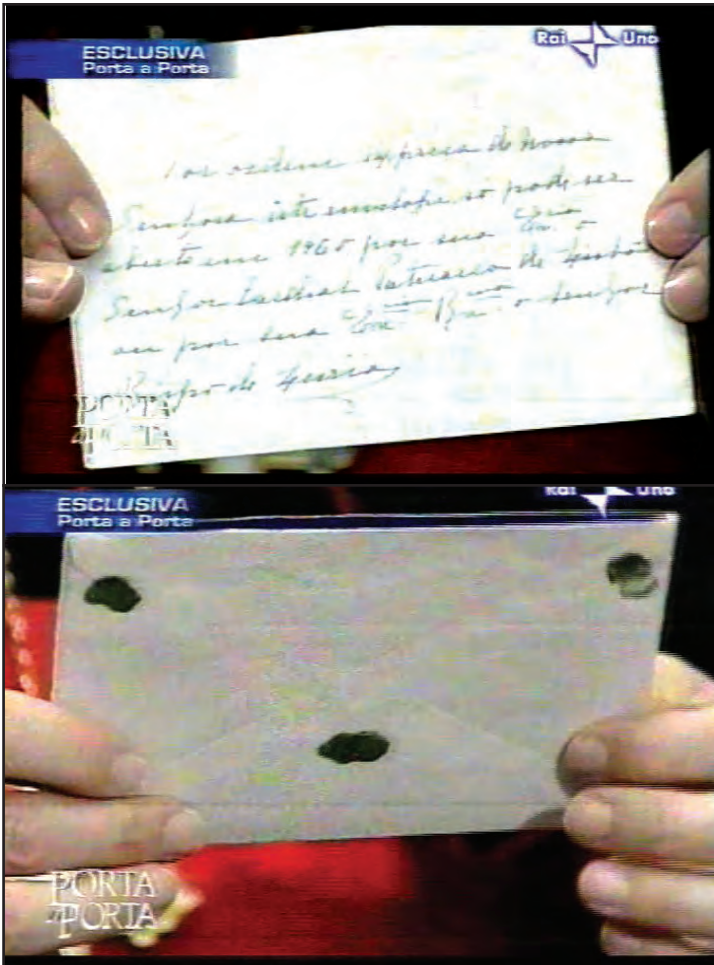 ESCLUSIVA
Porta a Porta
Rai Uno
Por ordem expressa de Nossa
Senhora este envelope só pode ser
aberto em 1960 por sua Emcia o
Senhor Cardeal Patriarca de Lisboa
ou por sua Excia Rma o Senhor
Bispo de Leiria
PORTA
a PORTA
ESCLUSIVA
Porta a Porta
Rai Uno
PORTA
a PORTA